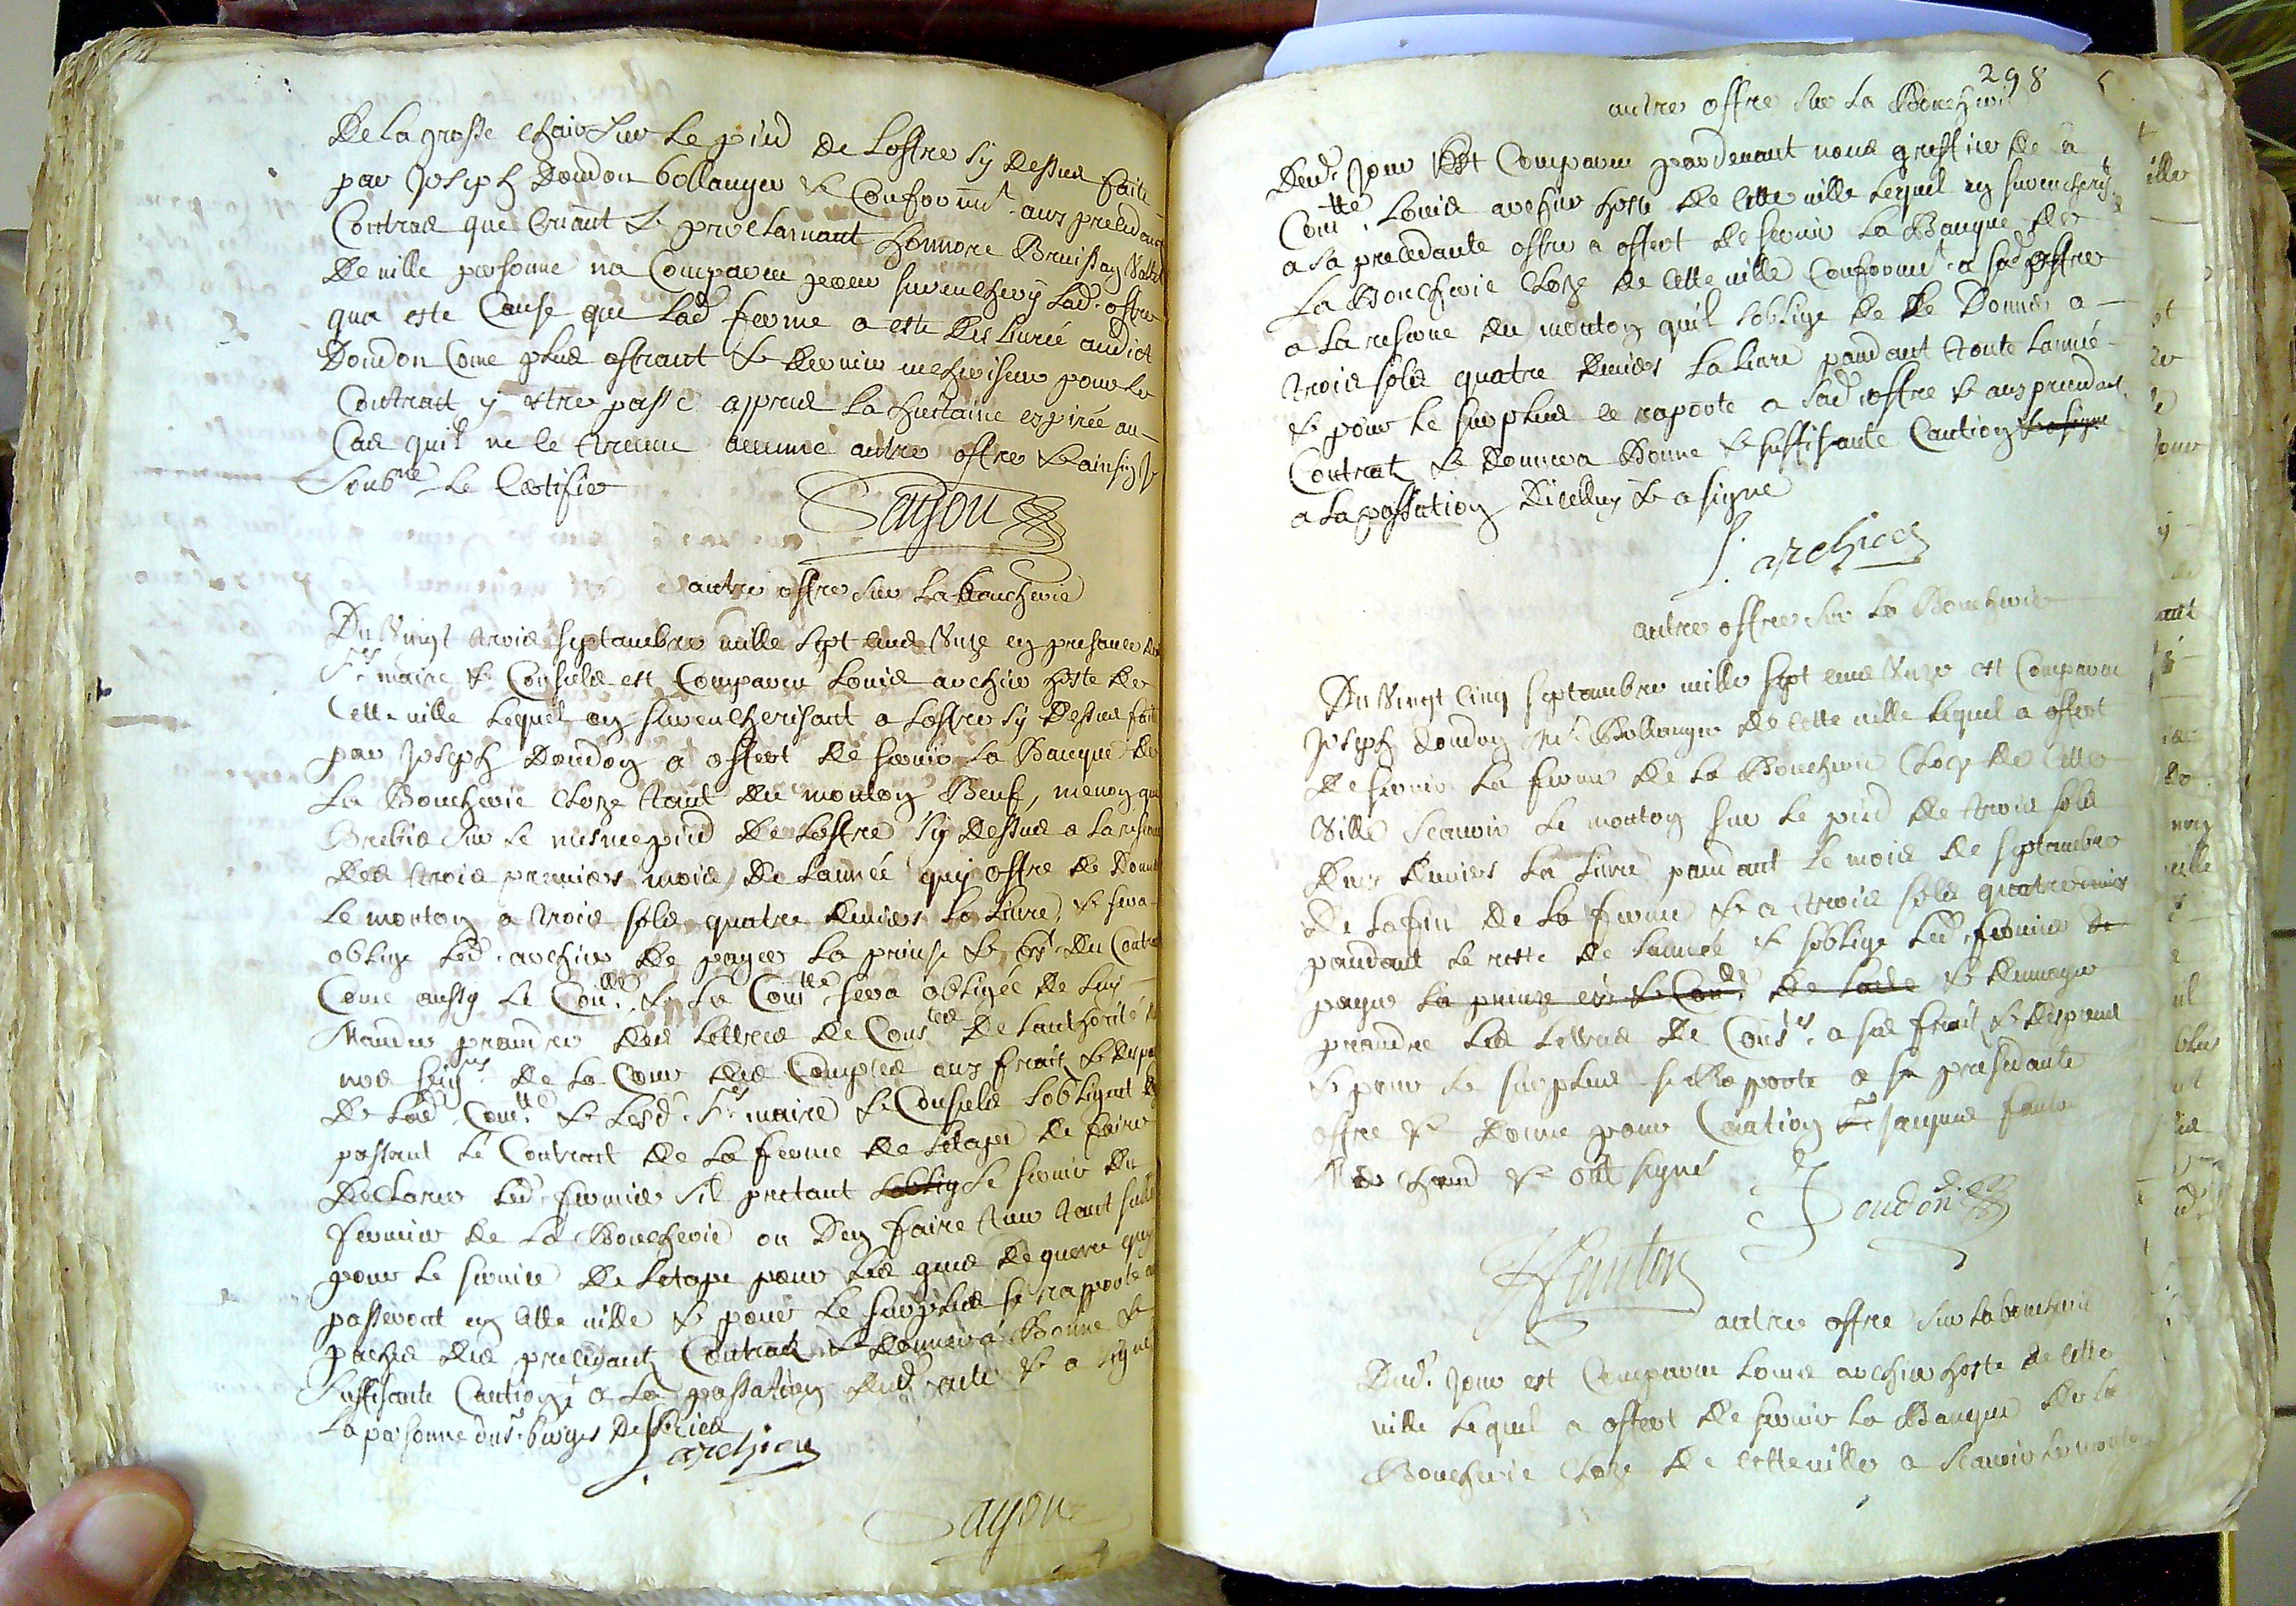 De la grosse chair sur le pied de loffre sy dessus faite
par Joseph Doudon bollanger & Conformt aux precedans
Contracs que Criant & proclamant honnore Valet
de ville personne na Comparu pour surenchery lad. offre
qua este Cause que lad ferme a este des livrée audict
Doudon Come plus offrant & dernier pour le
Contract y estre passé appres la huctaine expirée au
Cas quil ne se treuve aucune autre offre & ainsin Je
Soubné le Certifie
Sayou
autre offre sur la boucherie
Du Vingt trois septambre mille sept cens Unze en presance des
Srs maire & Consuls est Comparu Louis archier hoste de
Cette ville lequel en surencherisant a loffre sy dessus faite
par Joseph Doudon a offert de servir la Banque de
La Boucherie Close tant du mouton Beuf, menon que
Brebis sur le mesme pied de loffre sy dessus a la reserve
des trois premiers mois de lannée quy offre de Donner
Le mouton a trois sols quatre deniers la livre, & sera
oblige led. archier de payer la prinse & ext. du Contract
Come aussy le Con.lle & la Comtté sera obligée de luy
Mander prandre des lettres de Consles de lauthorité de
nos seigrs de la Cour des Comptes aux frait & despans
de lad Comtté & lesd. Srs maire & Consuls sobligent en
passant le Contract de la ferme de letape de faire
declarer led. fermier sil pretant soblig se servir du
fermier de la Boucherie ou den faire tuer tant sulement
pour le service de letape pour les gens de guerre quy
passeront en cette ville & pour le surplus se rapporte aux
paches des precedants Contracts & donnera Bonne &
suffisante Caution a la passation dud acte & a signé
La personne du sr. burges des
L. archier
Sayou
298
autre offre sur la Boucherie
Dud. Jour Est Comparu pardevant nous greffier de la
Comtté. Louis archier hoste de Cette ville lequel en surencherit
a sa precedante offre a offert de servir la Banque de
La Boucherie Close de Cette ville Conformt. a sad offre
a la reserve du mouton quil soblige de le Donner a
trois sols quatre deniers la livre pandant toute lannée
& pour le surplus se raporte a sad. offre & aux precedants
Contrats & donnera Bonne & suffisante Caution & a signe
a la passation dicelluy & a signé
L. archier
autre offre sur la Boucherie
Du Vingt Cinq septambre mille sept cens Unze est Comparu
Joseph doudon Me. Bollanger de Cette ville lequel a offert
de servir la ferme de la Boucherie Close de Cette
Ville scavoir le mouton sur le pied de trois sols
deux deniers la livre pandant le mois de septambre
de la fin de la ferme & a trois sols quatre deniers
pandant le reste de lannée & soblige led. fermier de
payer la prinze & de lacte & denvoyer
prandre les lettres de Consles. a ses frait & despans
& pour le surplus se Rapporte a sa presedante
offre & donne pour Caution Sr jacques fanton
Mar chand & ont signé
J Doudon
Fanton
autre offre sur la boucherie
Dud. Jour est Comparu Louis archier hoste de Cette
ville lequel a offert de servir la Banque de la
Boucherie Close de Cette ville a scavoir le mouton